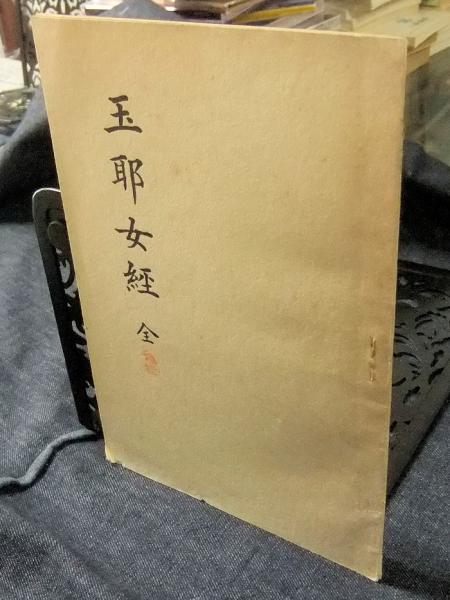 玉耶女經 全